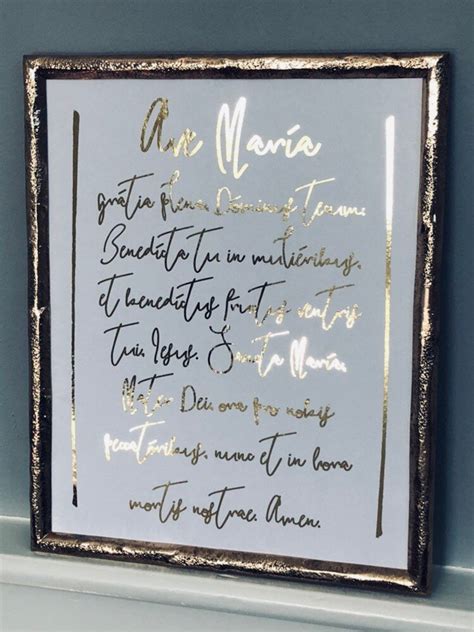 Ave María
grátia plena. Dóminus tecum.
Benedícta tu in muliéribus,
et benedíctus fructus ventris
tui, Iesus. Sancta María,
Mater Dei, ora pro nobis
peccatóribus, nunc et in hora
mortis nostrae. Amen.